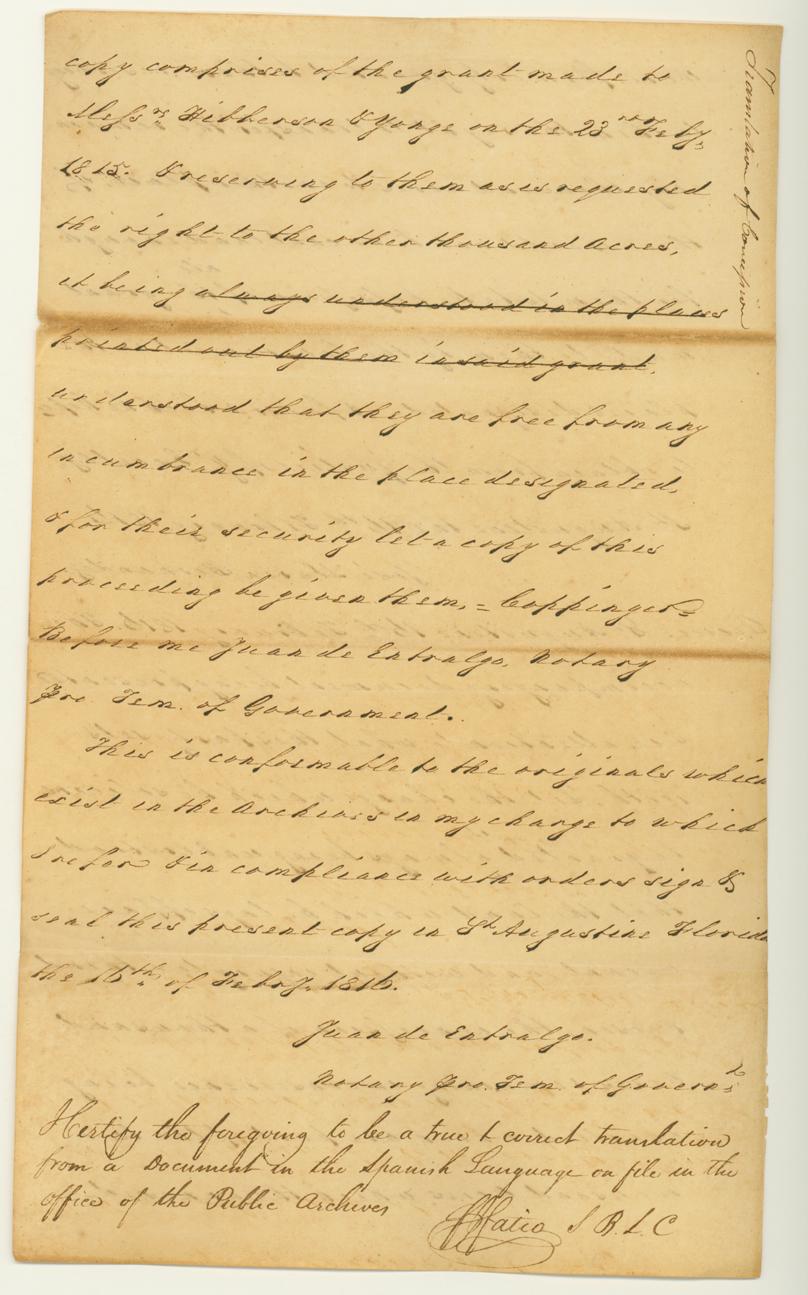 copy comprises of the grant made to
Messrs. Hibberson & Yonge on the 23rd Feby.
1815. & reserving to them as is requested
the right to the other thousand Acres,
it being always understood in the places
pointed out by them in said grant,
understood that they are free from any
incumbrance in the place designated,
& for their security let a copy of this
proceeding be given them, = Coppinger =
Before me Juan de Entralgo, Notary
Pro. Tem. of Government.
This is conformable to the originals which
exist in the Archives in my charge to which
I refer & in compliance with orders sign &
seal this present copy in St. Augustine Florida
the 16th. of Feby. 1816.
Juan de Entralgo.
Notary Pro. Tem. of Governt.
I Certify the foregoing to be a true & correct translation
from a Document in the Spanish Language on file in the
office of the Public Archives
FJFatio S B. L C
Translation of Concession